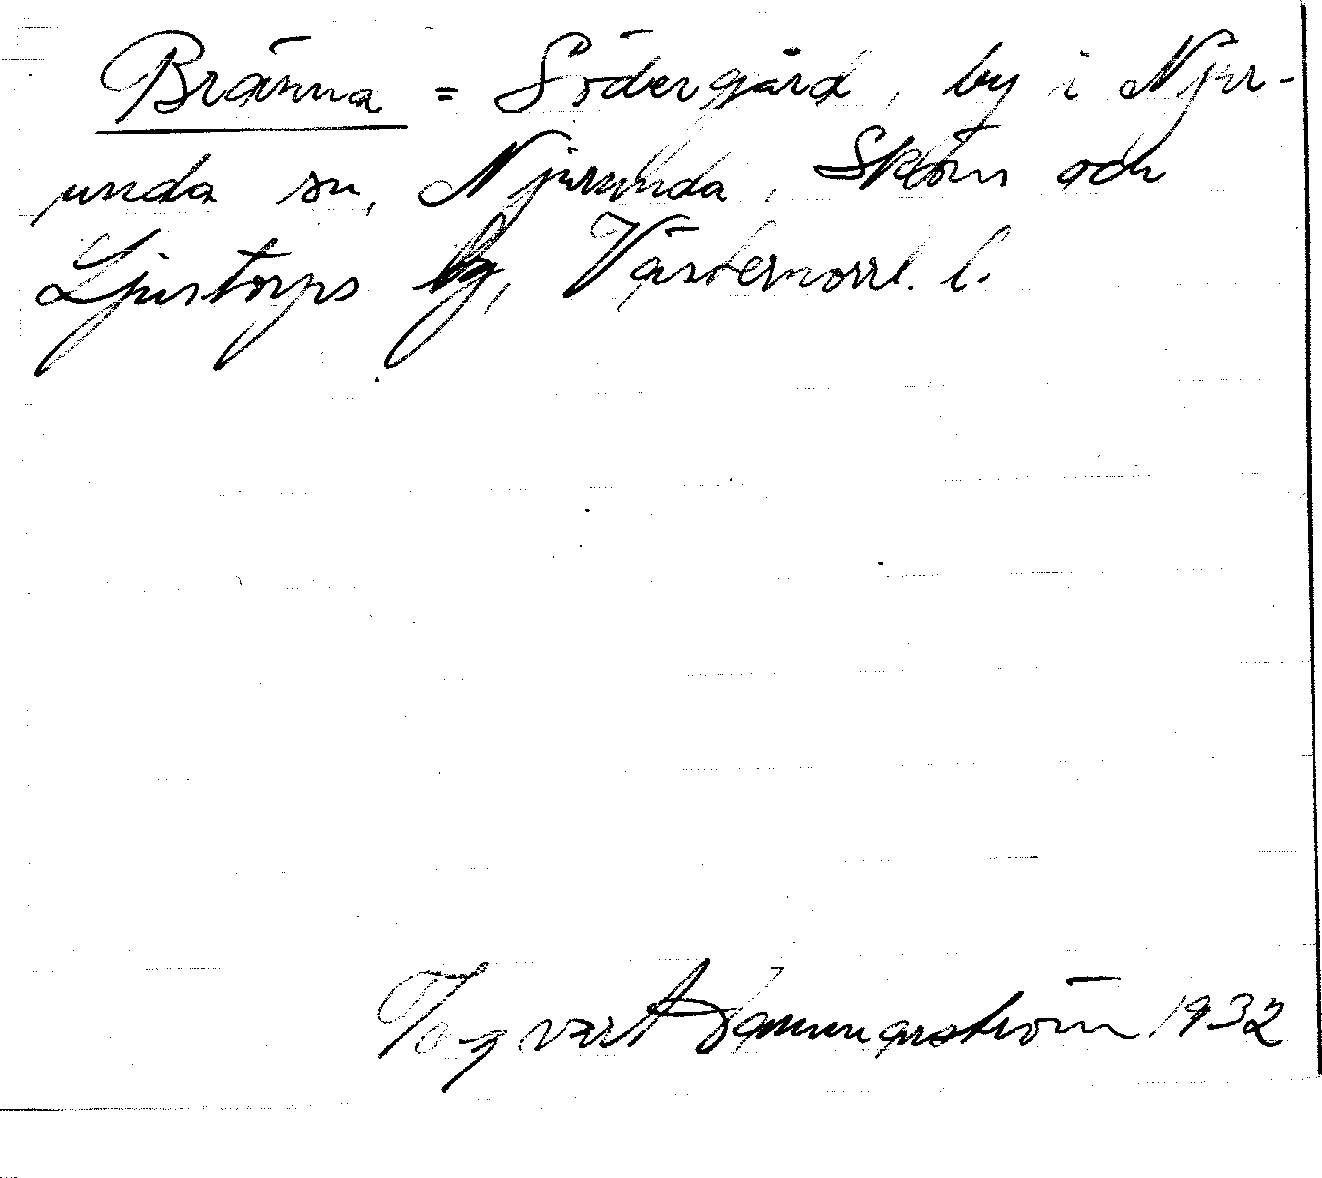 Bränna = Södergård, by i Njur-
unda sn, Njurunda, Sköns och
Ljustorps tg, Västernorrl. l.
Hammarström 1932